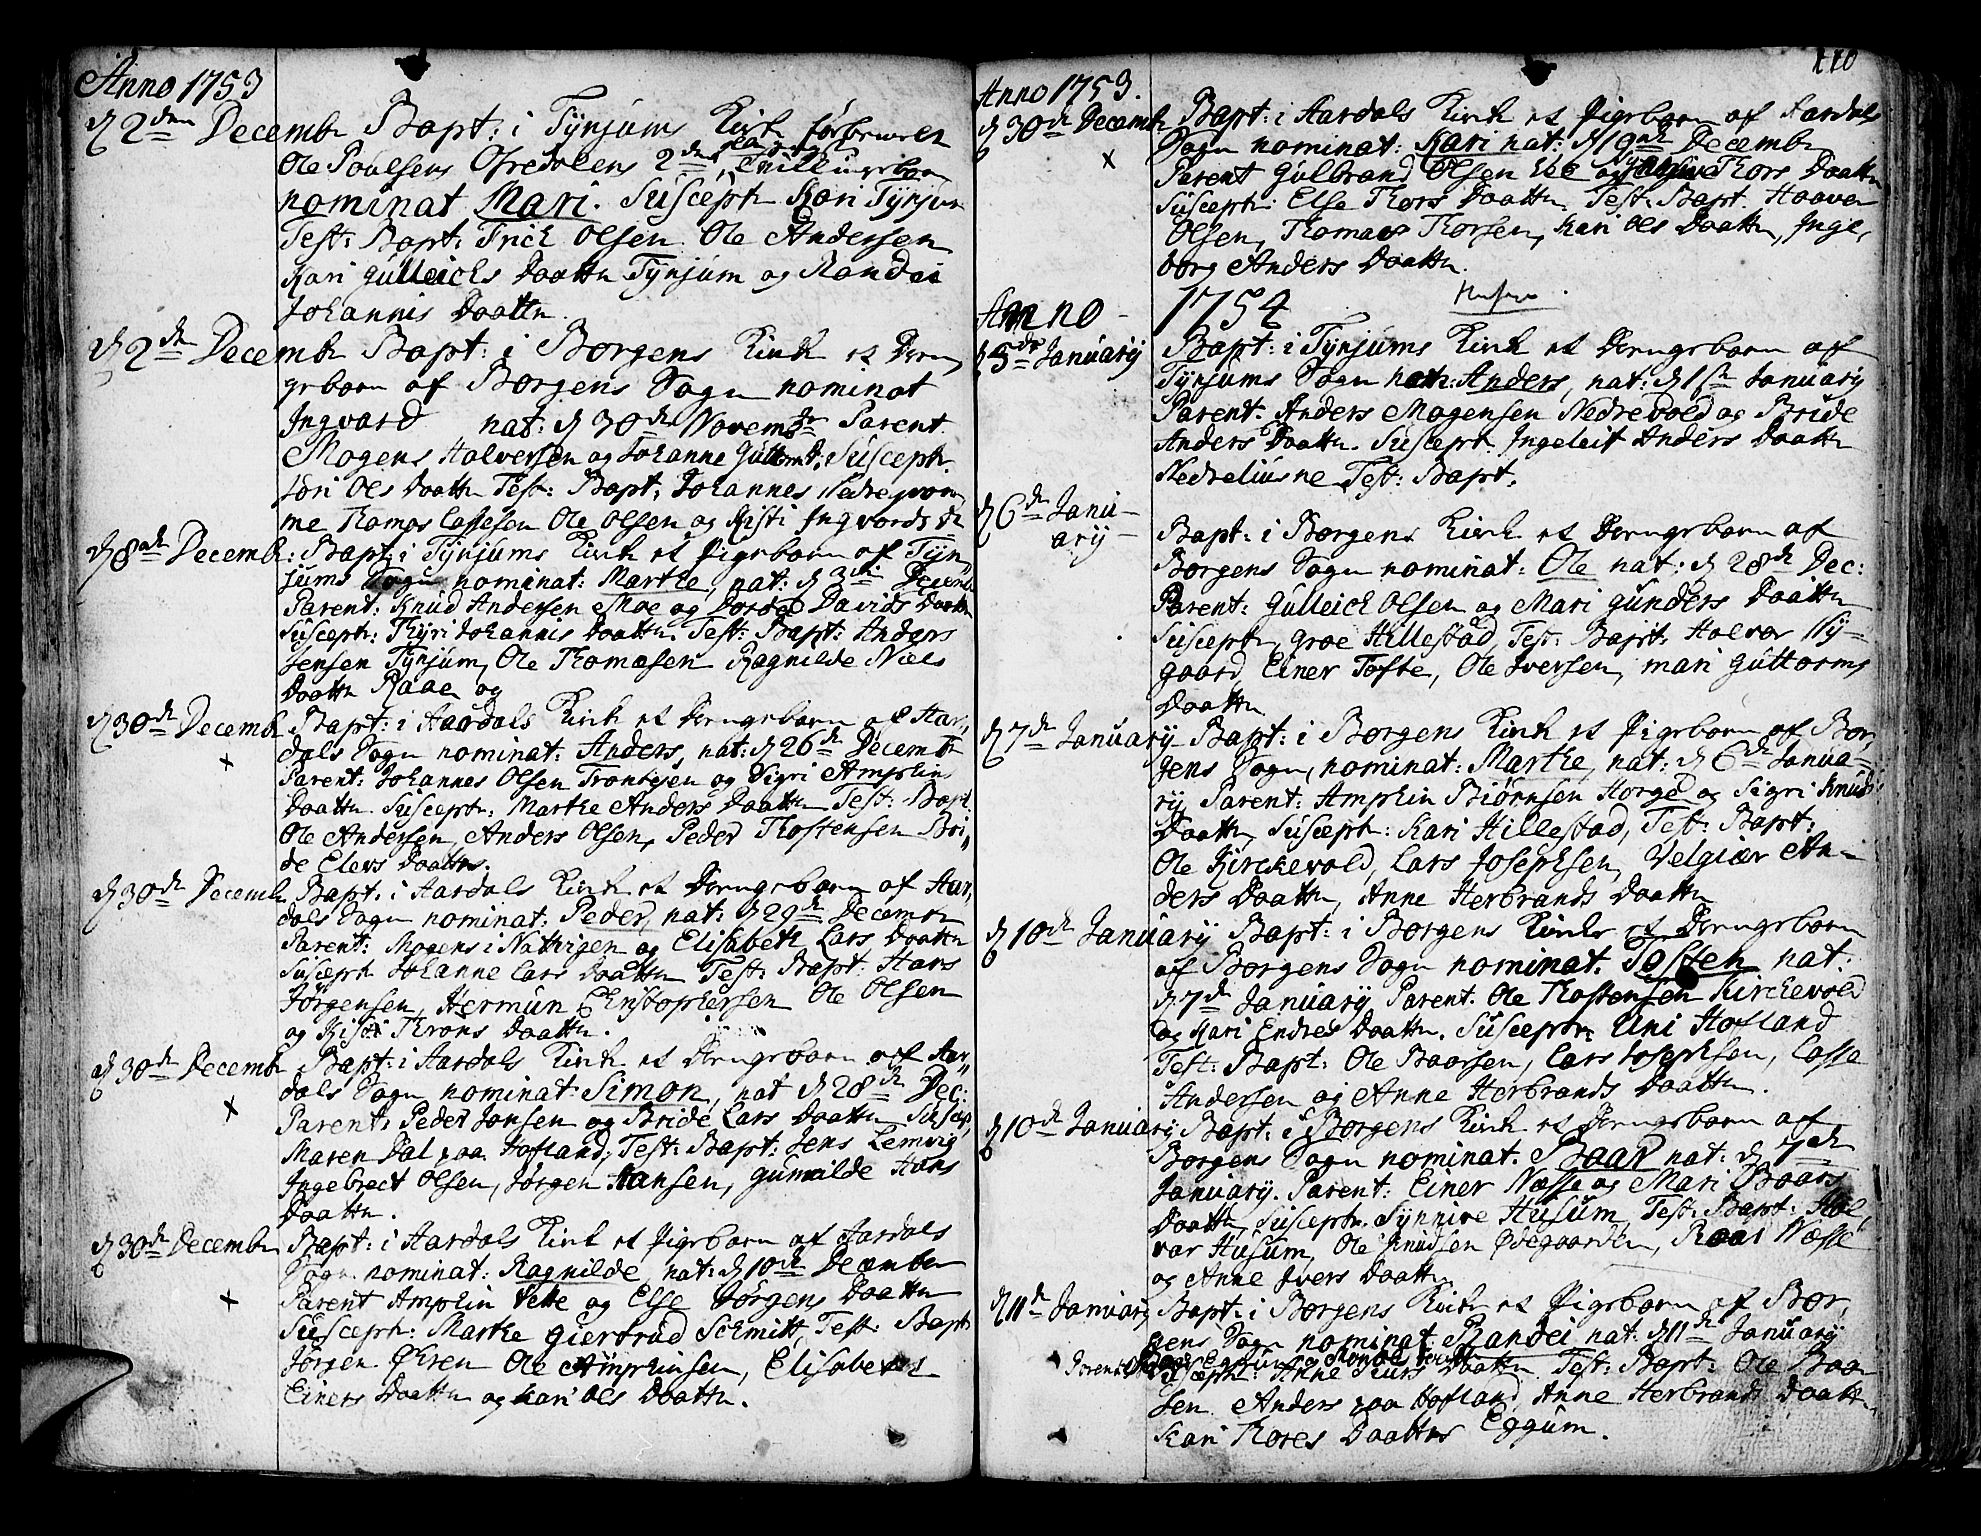 Anno 1753
d 2den Decemb Bapt: i Tynjums Kirk
Ole Poulsens Ofredalens 2den Tvillingsbarn
nominat Mari. Suscept Kari Tynjum
Test: Bapt: Frich Olsen Ole Andersen
Kari Gulleichs Daatter Tynjum og Randei
Johannis Daatter.
d 2den Decemb Bapt: i Borgens Kirk et Dreng,
gebarn af Borgens Sogn nominat
Ingvard nat: d 30de Novemb Parent
Mogens Halversen og Johanne Guttorms D. Suscept:
Søri Ols Daatter Test: Bapt: Johannes Nedregrom
me Thomas Lassesen Ole Olsen og Kisti Ingvards D
d 8de Decemb: Bapt: i Tynjums Kirk et Pigebarn af Tyn
jums Sogn nominat: Marthe, nat: d 3die Decemb
Parent: Knud Andersen Moe og Dorde Davids Daatter
Suscept: Thyri Johannis Daatter Test: Bapt: Anders
Jensen Tynjum, Ole Thomæsen Ragnilde Niels
Daatter Raae og
d 30de Decemb Bapt: i Aardals Kirk et Drengebarn af Aar,
dals Sogn nominat: Anders, nat: d 26de Decemb
x
Parent: Johannes Olsen Trontejen og Sigri Amphins
Daatter Suscept: Marthe Anders Daatter Test: Bapt
Ole Andersen, Anders Olsen, Peder Thostensen Bri,
de Elevs Daatter.
d 30de Decemb Bapt: i Aardals Kirk et Drengebarn af Aar,
dals Sogn nominat: Peder, nat: d 29de Decemb
Parent: Mogens i Nathvigen og Elisabeth Lars Daatter
Suscept Johanne Lars Daatter Test: Bapt: Hans
Jörgensen, Hermun Christophersen Ole Olsen
og Kisti Throns Daatter.
d 30de Decemb Bapt: i Aardals Kirk et Drengebarn af Aar,
dals Sogn nominat: Simon, nat d 28de Dec:
x
Parent: Peder Jonsen og Bride Lars Daatter Suscep
Maren Dal paa Hofland, Test: Bapt: Jens Lemvig
Ingebrect Olsen, Jörgen Hansen, Gunnilde Hans
Daatter.
d 30de Decemb Bapt: i Aardals Kirk et Pigebarn af Aardals
Sogn nominat: Ragnilde, nat: d 10de Decembr
x
Parent Amphin Vette og Else Jörgens Daatter
Suscept: Marthe Giertrud Schmitt, Test: Bapt
Jörgen Øren Ole Amphinsen, Elisabeth
Einers Daatter og Kari Ols Daatter.
110
Anno 1753.
d 30de Decemb Bapt: i Aardals Kirk et Pigebarn af Aardals
Sogn nominat: Kari nat: d 19de Decemb
x
Parent Gulbrand Olsen og Thors Daatter
Suscept: Else Thors Daatter. Test: Bapt. Haavor
Olsen, Thomas Thorsen, Kari Ols Daatter, Inge,
borg Anders Daatter.
Anno 1754
d 5de January Bapt: i Tynjums Kirk et Drengebarn af
Tynjums Sogn nom: Anders, nat: d 1ste January
Parent: Anders Mogensen Nedrevold og Bride
Anders Daatter. Suscept. Ingeleit Anders Daatter
Nedreliusne Test: Bapt.
d 6de Janu-
ary - Bapt: i Borgens Kirk et Drengebarn af
Borgens Sogn nominat: Ole nat: d 28de Dec:
Parent: Gulleich Olsen og Mari Gunders Daatter
Suscept: Groe Hillestad, Test: Bapt. Halvor Ny-
gaard, Einer Tofte, Ole Iversen, Mari Guttorms
Daatter
d 7de January Bapt: i Borgens Kirk et Pigebarn af Bor,
gens Sogn, nominat: Marthe, nat: d 6de Janua-
ry Parent: Amphin Biörnsen Horge og Sigri Knuds
Daatter, Suscept: Kari Hillestad, Test: Bapt:
Ole Kirckevold, Lars Josephsen, Velgiær An-
ders Daatter, Anne Herbrands Daatter
d 10de January Bapt: i Borgens Kirke et Drengebarn
af Borgens Sogn nominat. Tosten nat:
d 7de January Parent. Ole Thostensen Kirckevold
og Kari Endres Daatter. Suscept: Uni Hofland
Test: Bapt: Ole Baarsen, Lars Josephsen, Lasse
Andersen og Anne Herbrands Daatter.
d 10de January Bapt: i Borgens Kirk et Drengebarn af
Borgens Sogn nominat. Baar nat: d 7de
January. Parent: Einer Næsse og Mari Baars
Daatter, Suscept: Synnive Husum, Test: Bapt: Hal,
var Husum, Ole Knudsen Ödegaarden, Roal Næsse
og Anne Ivers Daatter
d 11te January Bapt: i Borgens Kirk et Pigebarn af Bor,
gens Sogn nominat. Randei nat: d 11te January
Suscept: Anne Daatter Test: Bapt: Ole Baar
sen Anders paa Hofland, Anne Herbrands Daatter,
Kari Thores Daatter Eggum.